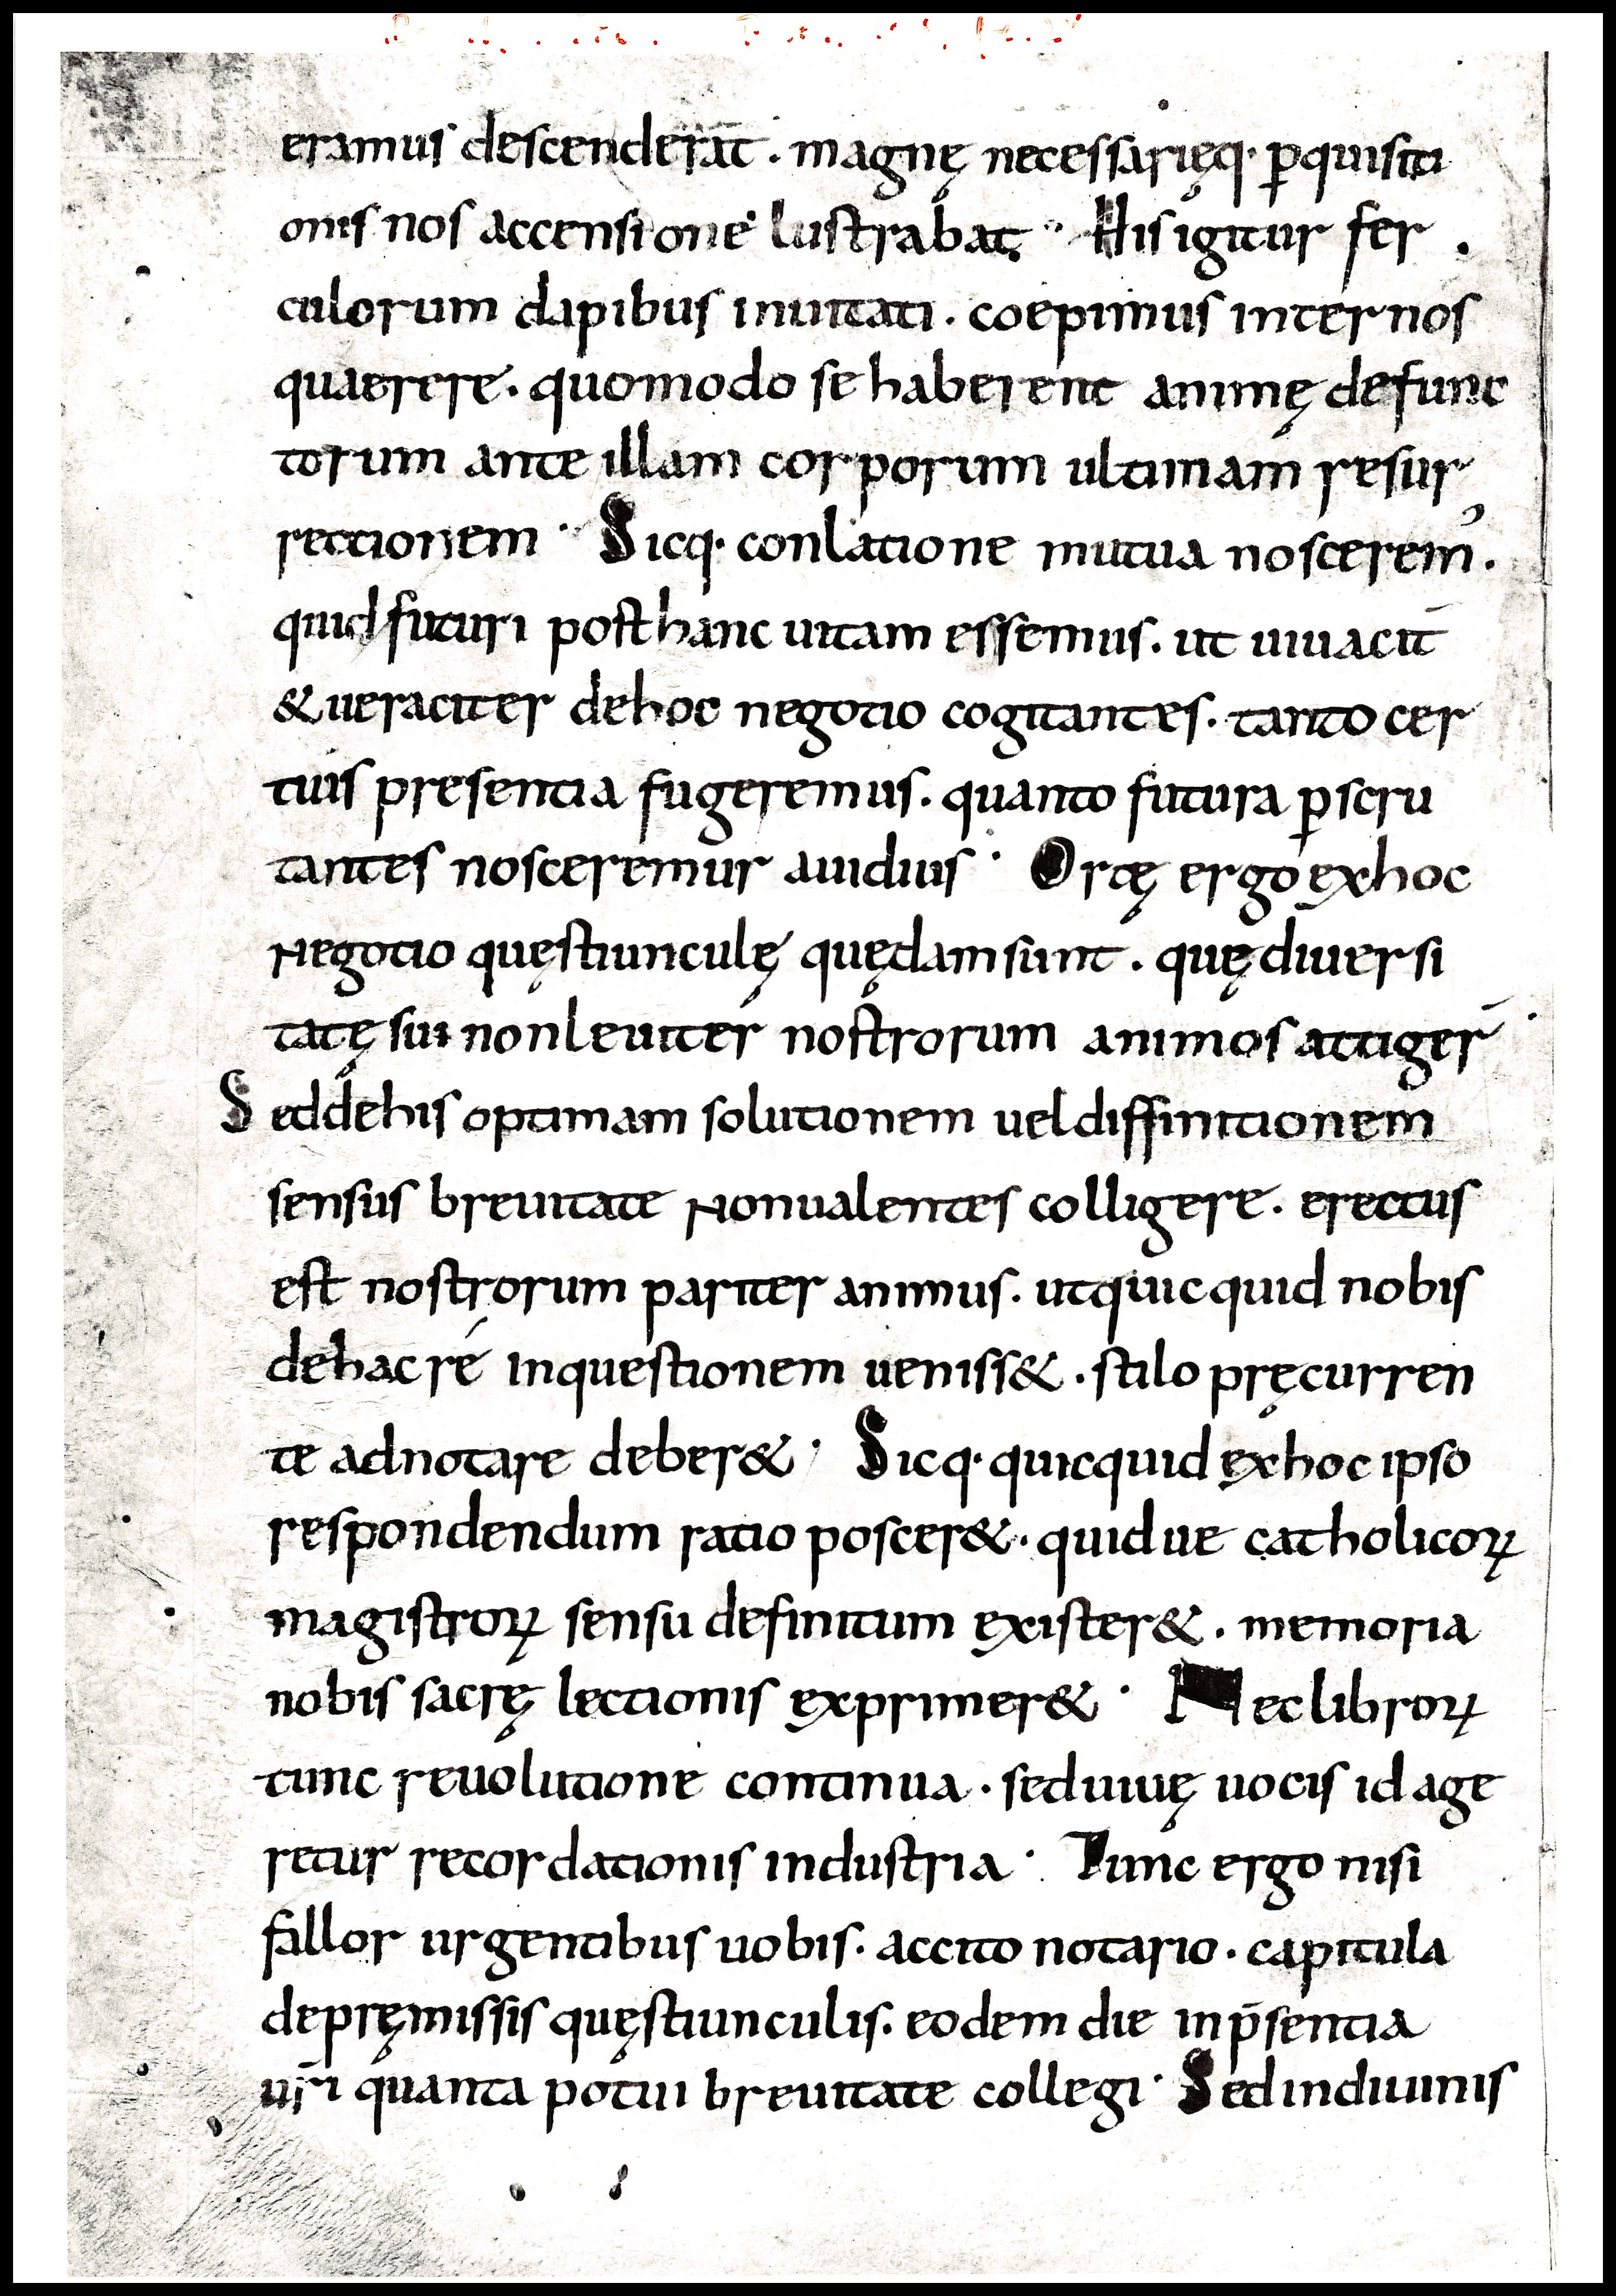 eramus descenderat . magnę necessarięq· ꝑquisiti
onis nos accensione lustrabat · His igitur fer
culorum dapibus inuitati . coepimus inter nos
quaerere . quomodo se haberent animę defunc
torum ante illam corporum ultimam resur
rectionem · Sicq· conlatione mutua noscerem᾽ .
quid futuri post hanc uitam essemus . ut uiuacit̄
& ueraciter de hoc negotio cogitantes . tanto cer
tius presentia fugeremus . quanto futura ꝑscru
tantes nosceremur auidius · Ortę ergo ex hoc
negotio quęstiunculę quędam sunt . quę diuersi
tatę sui non leuiter nostrorum animos attiger̄ ·
Sed de his optimam solutionem uel diffinitionem
sensus breuitate non ualentes colligere . erectus
est nostrorum pariter animus . ut quicquid nobis
de hac ré in questionem ueniss& . stilo pręcurren
te adnotare deber& · Sicq· quicquid ex hoc ipso
respondendum ratio poscer& . quidue catholicoꝝ
magistroꝝ sensu definitum exister& . memoria
nobis sacrę lectionis exprimer& · Nec libroꝝ
tunc reuolutione continua . sed uiuę uocis id age
retur recordationis industria · Tunc ergo nisi
fallor urgentibus uobis . accito notario . capitula
de pręmissis quęstiunculis . eodem die in p̄sentia
ur̄i quanta potui breuitate collegi · Sed in diuinis